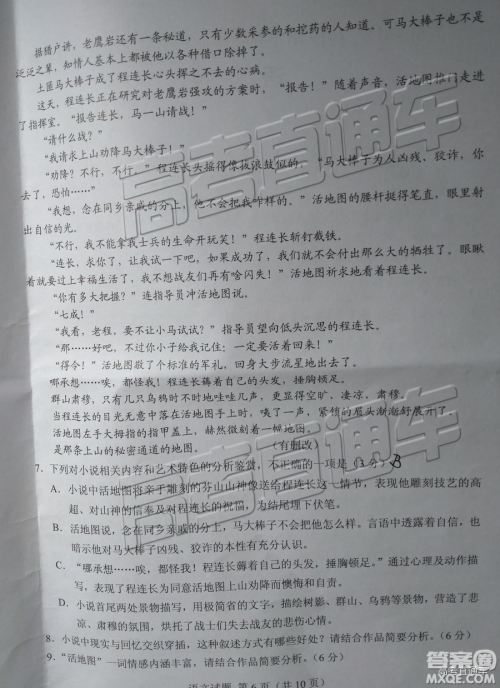 据猎户讲，老鹰岩还有一条秘道，只有少数采参的和挖药的人知道。可马大棒子也不是
泛泛之辈，知情人基本上都被他以各种借口除掉了。
土匪马大棒子成了程连长心头挥之不去的心病。
这天，程连长正在研究对老鹰岩强攻的方案时，“报告！”随着声音，活地图推门走进
了指挥室。“报告连长，马一山请战！”
“请什么战？”
“我请求上山劝降马大棒子！”
“劝降？不行，不行！”程连长头摇得像拔浪鼓似的。“马大棒子为人凶残、狡诈，你
去了，恐怕……”
“我想，念在同乡亲戚的分上，他不会把我咋样的。”活地图的腰杆挺得笔直，眼里射
出自信的光。
“不行，我不能拿我士兵的生命开玩笑！”程连长斩钉截铁。
“连长，求你了，让我试一下吧，如果成功了，我们就不会付出那么大的牺牲了。眼瞅
着就要过上幸福生活了，我不想战友们再有啥闪失！”活地图祈求地看着程连长。
“你有多大把握？”连指导员冲活地图说。
“七成！”
“我看，老程，要不让小马试试？”指导员望向低头沉思的程连长。
“那……好吧，不过你小子给我记住：一定要给我活着回来！”
“得令！”活地图敬了个标准的军礼，回身大步流星地出去了。
哪承想……唉，都怪我！程连长薅着自己的头发，捶胸顿足。
群山肃穆，只有几只乌鸦时不时地哇哇几声，更显得空旷、凄凉、肃穆。
当程连长的目光无意中落到活地图的手时，咦了一声，随后眉头渐渐舒展开了。
活地图左手大拇指的指甲盖上，赫然微刻着一幅地图。
是那条上山的秘密通道的地图。（有删改）
7．下列对小说相关内容和艺术特色的分析鉴赏，不正确的一项是（3分）B
A．小说中活地图将亲手雕刻的芬山山神像送给程连长的情节，既表现了他雕刻技艺的高
超，对山神的信奉及对程连长的祝福，为结尾埋下伏笔。
B．活地图说，念在同乡亲戚的分上，马大棒子不会把他怎么样。言语中透露着自信，也
暗示他对马大棒子凶残、狡诈的本性有充分认识。
C．“哪承想……唉，都怪我！程连长薅着自己的头发，捶胸顿足。”通过心理及动作描
写，表现了程连长为同意活地图上山劝降而懊悔和自责。
D．小说首尾两处景物描写，用白描的手法，描绘影影、群山、乌鸦等景物，营造了悲
凉、肃穆的氛围，烘托出了生者失去战友的悲伤心情。
8．小说中现实与回忆交织穿插，这种叙述方式有哪些好处？请结合作品简要分析。（6分）
9．“活地图”一词情感内涵丰富，请结合作品简要分析。（6分）
语文试题 第6页（共10页）
高考直通车
高考直通车
高考直通车
答案圈
MXEDA.COM